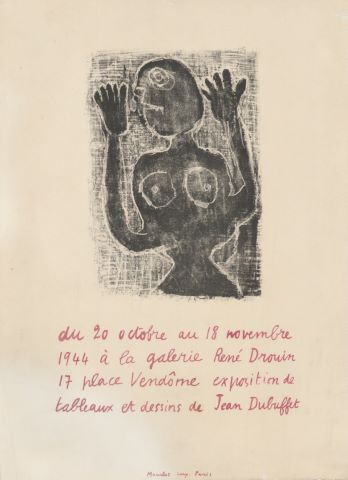 du 20 octobre au 18 novembre
1944 à la galerie René Drouin
17 place Vendôme exposition de
tableaux et dessins de Jean Dubuffet
Mourlot imp. Paris